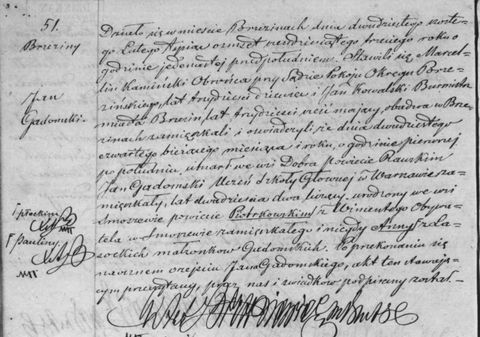 51.
Brzeziny
Jan
Gadomski.
Działo się w mieście Brzezinach dnia dwudziestego szóste-
go Lutego tysiąc ośmset sześdziesiątego trzeciego roku o
godzinie jedenastej przed południem. Stawili się Marcel-
lin Kamiński Obrońca przy Sądzie Pokoju Okręgu Brze-
zińskiego, lat trzydzieści dziewięć i Jan Kowalski Burmistrz
miasta Brzezin, lat trzydzieści sześć mający, obadwa w Brze-
zinach zamieszkali i oświadczyli, że dnia dwudziestego
czwartego bieżącego miesiąca i roku, o godzinie pierwszej
po południu, umarł we wsi Dobra powiecie Rawskim
Jan Gadomski Uczeń Szkoły Głównej w Warszawie za-
mieszkały, lat dwadzieścia dwa liczący, urodzony we wsi
powiecie Piotrkowskim z Wincentego Obywa-
tela w zamieszkałego i niegdy Anny z Za-
małżonków Gadomskich. Po przekonaniu się
o naocznem zejściu Jana Gadomskiego, akt ten stawają-
cym przeczytany, przez nas i świadków podpisany został.
Pauliny